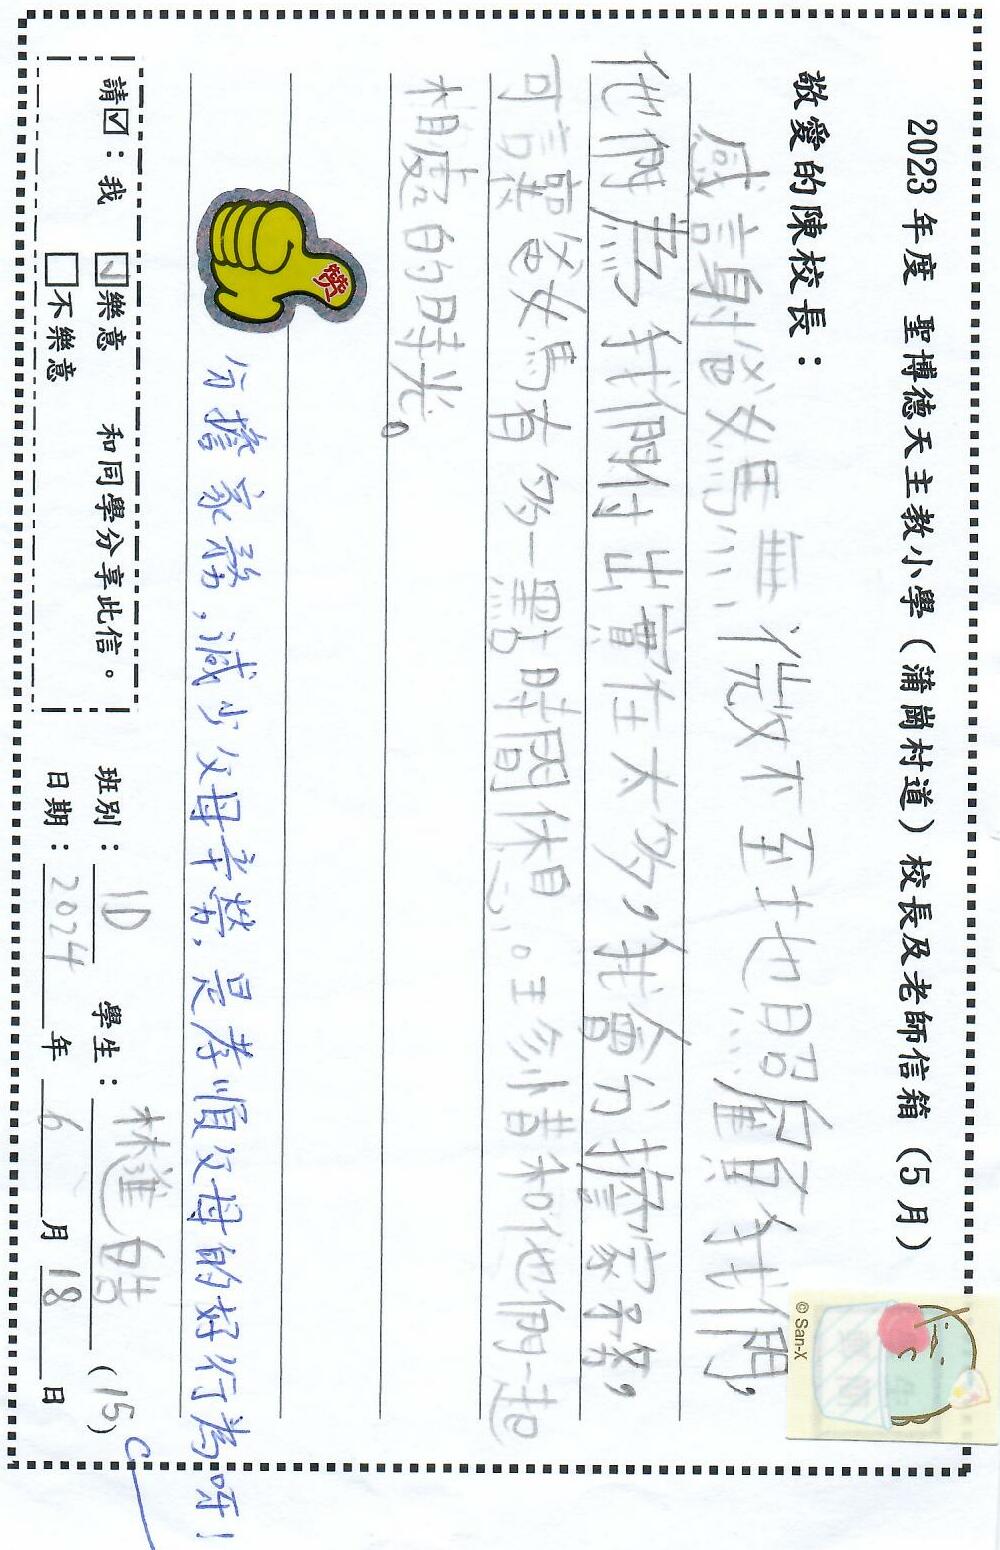 2023 年度 聖博德天主教小學（蒲崗村道）校長及老師信箱（5 月）
敬愛的陳校長：
感謝爸媽無微不至地照顧我們，
他們為我們付出實在太多，我會分擔家務，
可讓爸媽有多一點時間休息。珍惜和他們一起
相處的時光。
讚
分擔家務，減少父母辛勞，是孝順父母的好行為呀！
請☑：我 ☑樂意 和同學分享此信。
□不樂意
班別：1D 學生：林進皓 (15)
日期：2024 年 6 月 18 日
© San-X